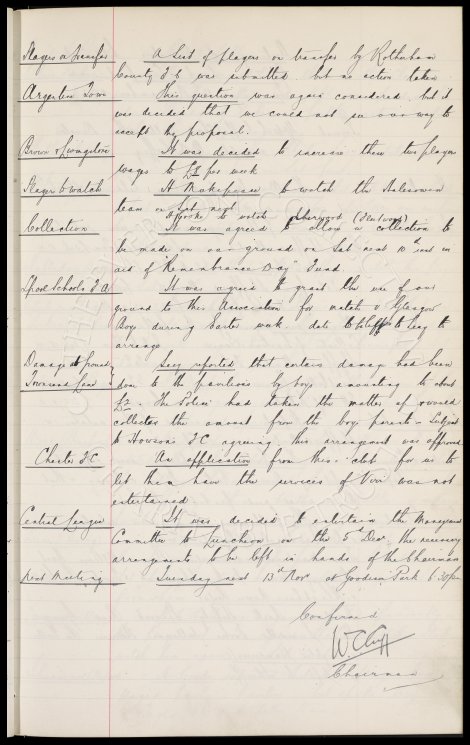 Players on transfer A List of players on transfer by Rotherham
County F.C. was submitted but no action taken
Argentine Tour This question was again considered but it
was decided that we could not see our way to
accept the proposal.
Brown & Livingstone It was decided to increase these two players
wages to per week
Player to watch A Makepeace to watch the Halesowen
team on Sat next
to watch Sherwood
Collection It was agreed to allow a collection to
be made on our ground on Sat next 10th inst in
aid of "Remembrance Day" Fund.
Lpool Schools F.A. It was agreed to grant the use of our
ground to this Association for match v Glasgow
Boys during Easter week date to be left to Secy to
arrange
Damage to Ground Secy reported that certain damage had been
Townsend Lane done to the pavilions by boys amounting to about
The Police had taken the matter up &
collected the amount from the boys parents. Subject
to Howson's F.C. agreeing this arrangement was approved
Chester F.C. An application from this club for us to
let them have the services of Virr was not
entertained.
Central League It was decided to entertain the Management
Committee to Luncheon on the 5th Decr, the necessary
arrangements to be left in hands of the Chairman
Next Meeting Tuesday next 13th Novr at Goodison Park 6.30pm
Confirmed
W. Cuff
Chairman